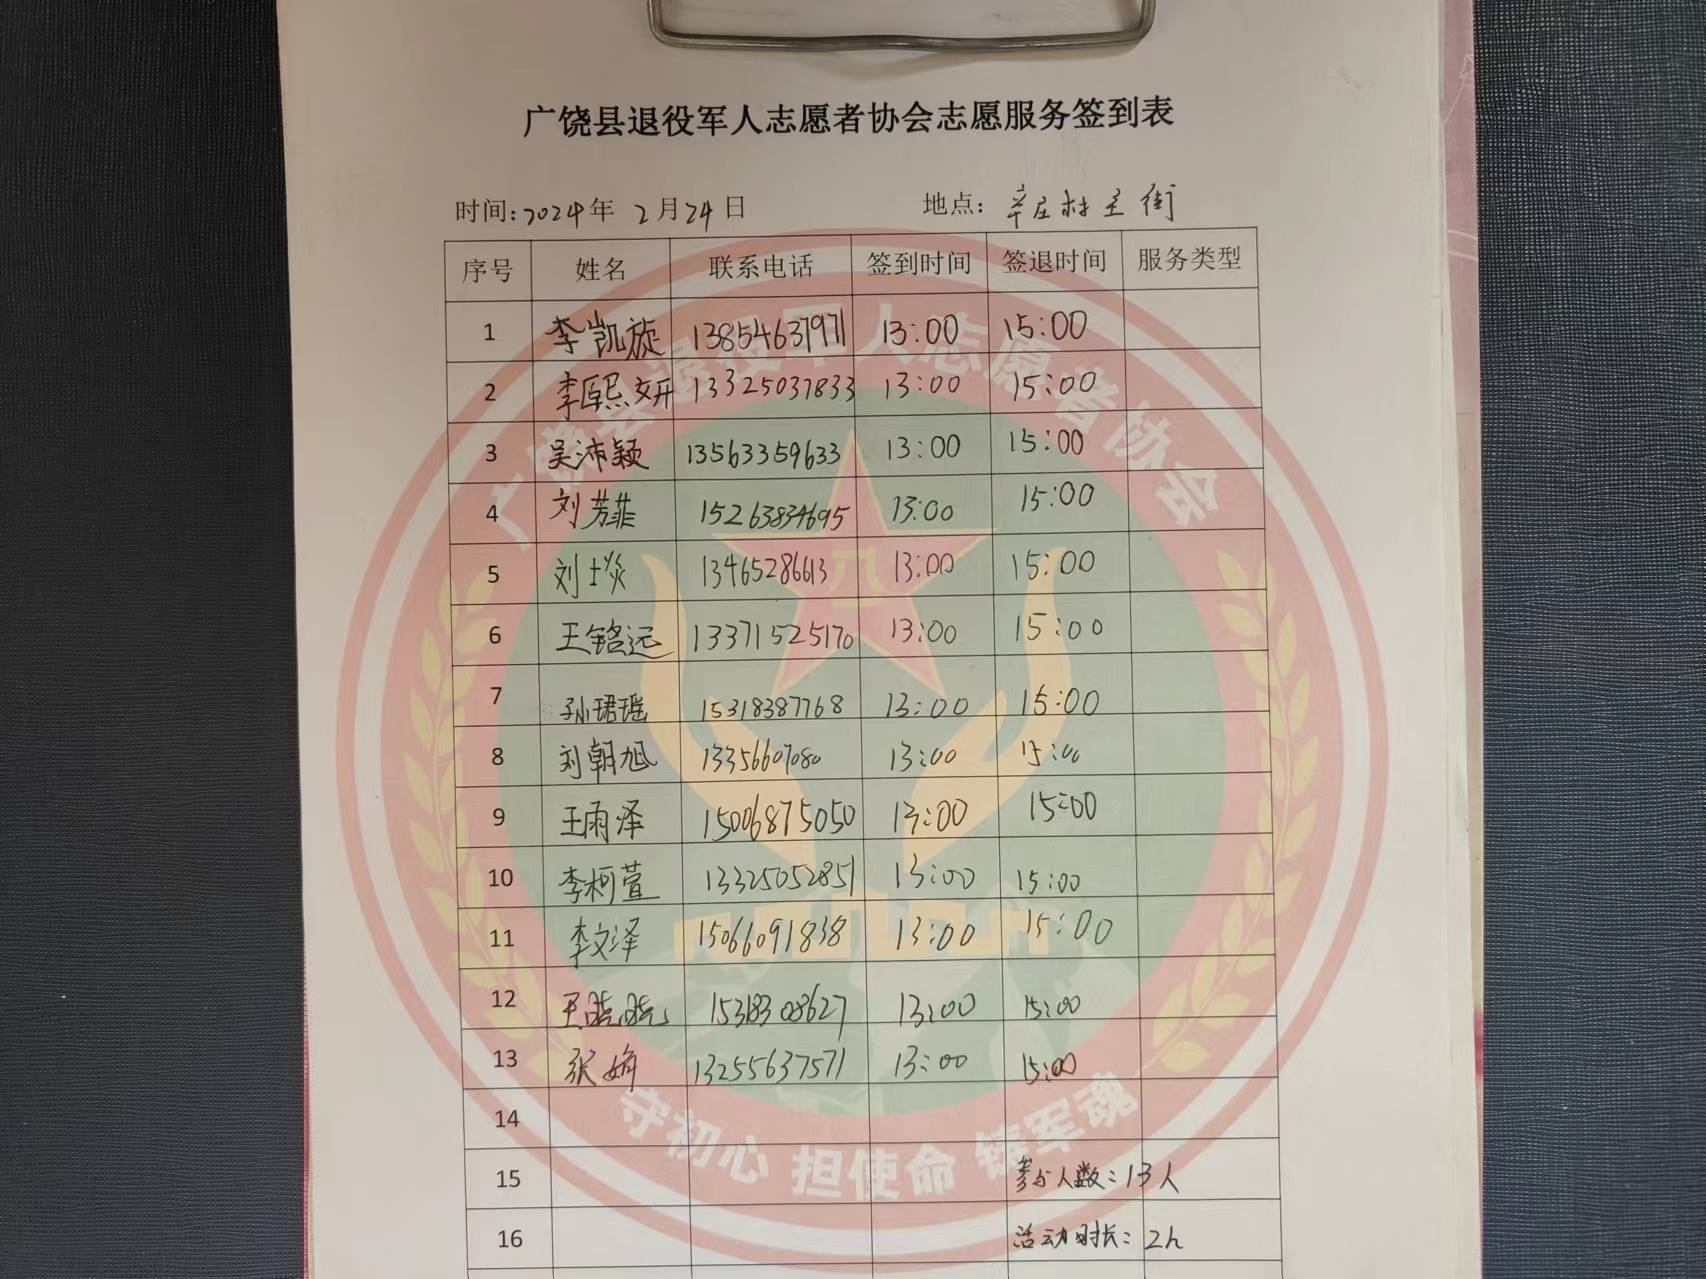 广饶县退役军人志愿者协会志愿服务签到表
时间:2024年 2月24日 地点: 辛庄村主街
序号 姓名 联系电话 签到时间 签退时间 服务类型
1 李凯旋 13854637971 13:00 15:00
2 李熙妍 13325037833 13:00 15:00
3 吴沛颖 13563359633 13:00 15:00
4 刘芳菲 15263834695 13:00 15:00
5 刘士炎 13465286613 13:00 15:00
6 王铭远 13371525170 13:00 15:00
7 孙珺瑶 15318387768 13:00 15:00
8 刘朝旭 13356607080 13:00 15:00
9 王雨泽 15006875050 13:00 15:00
10 李柯萱 13325052851 13:00 15:00
11 李文泽 15066091838 13:00 15:00
12 王皓皓 15318308627 13:00 15:00
13 张娇 13255637571 13:00 15:00
14
15 参与人数:13人
16 活动时长:2h
广饶县退役军人志愿者协会
八一
守初心 担使命 铸军魂